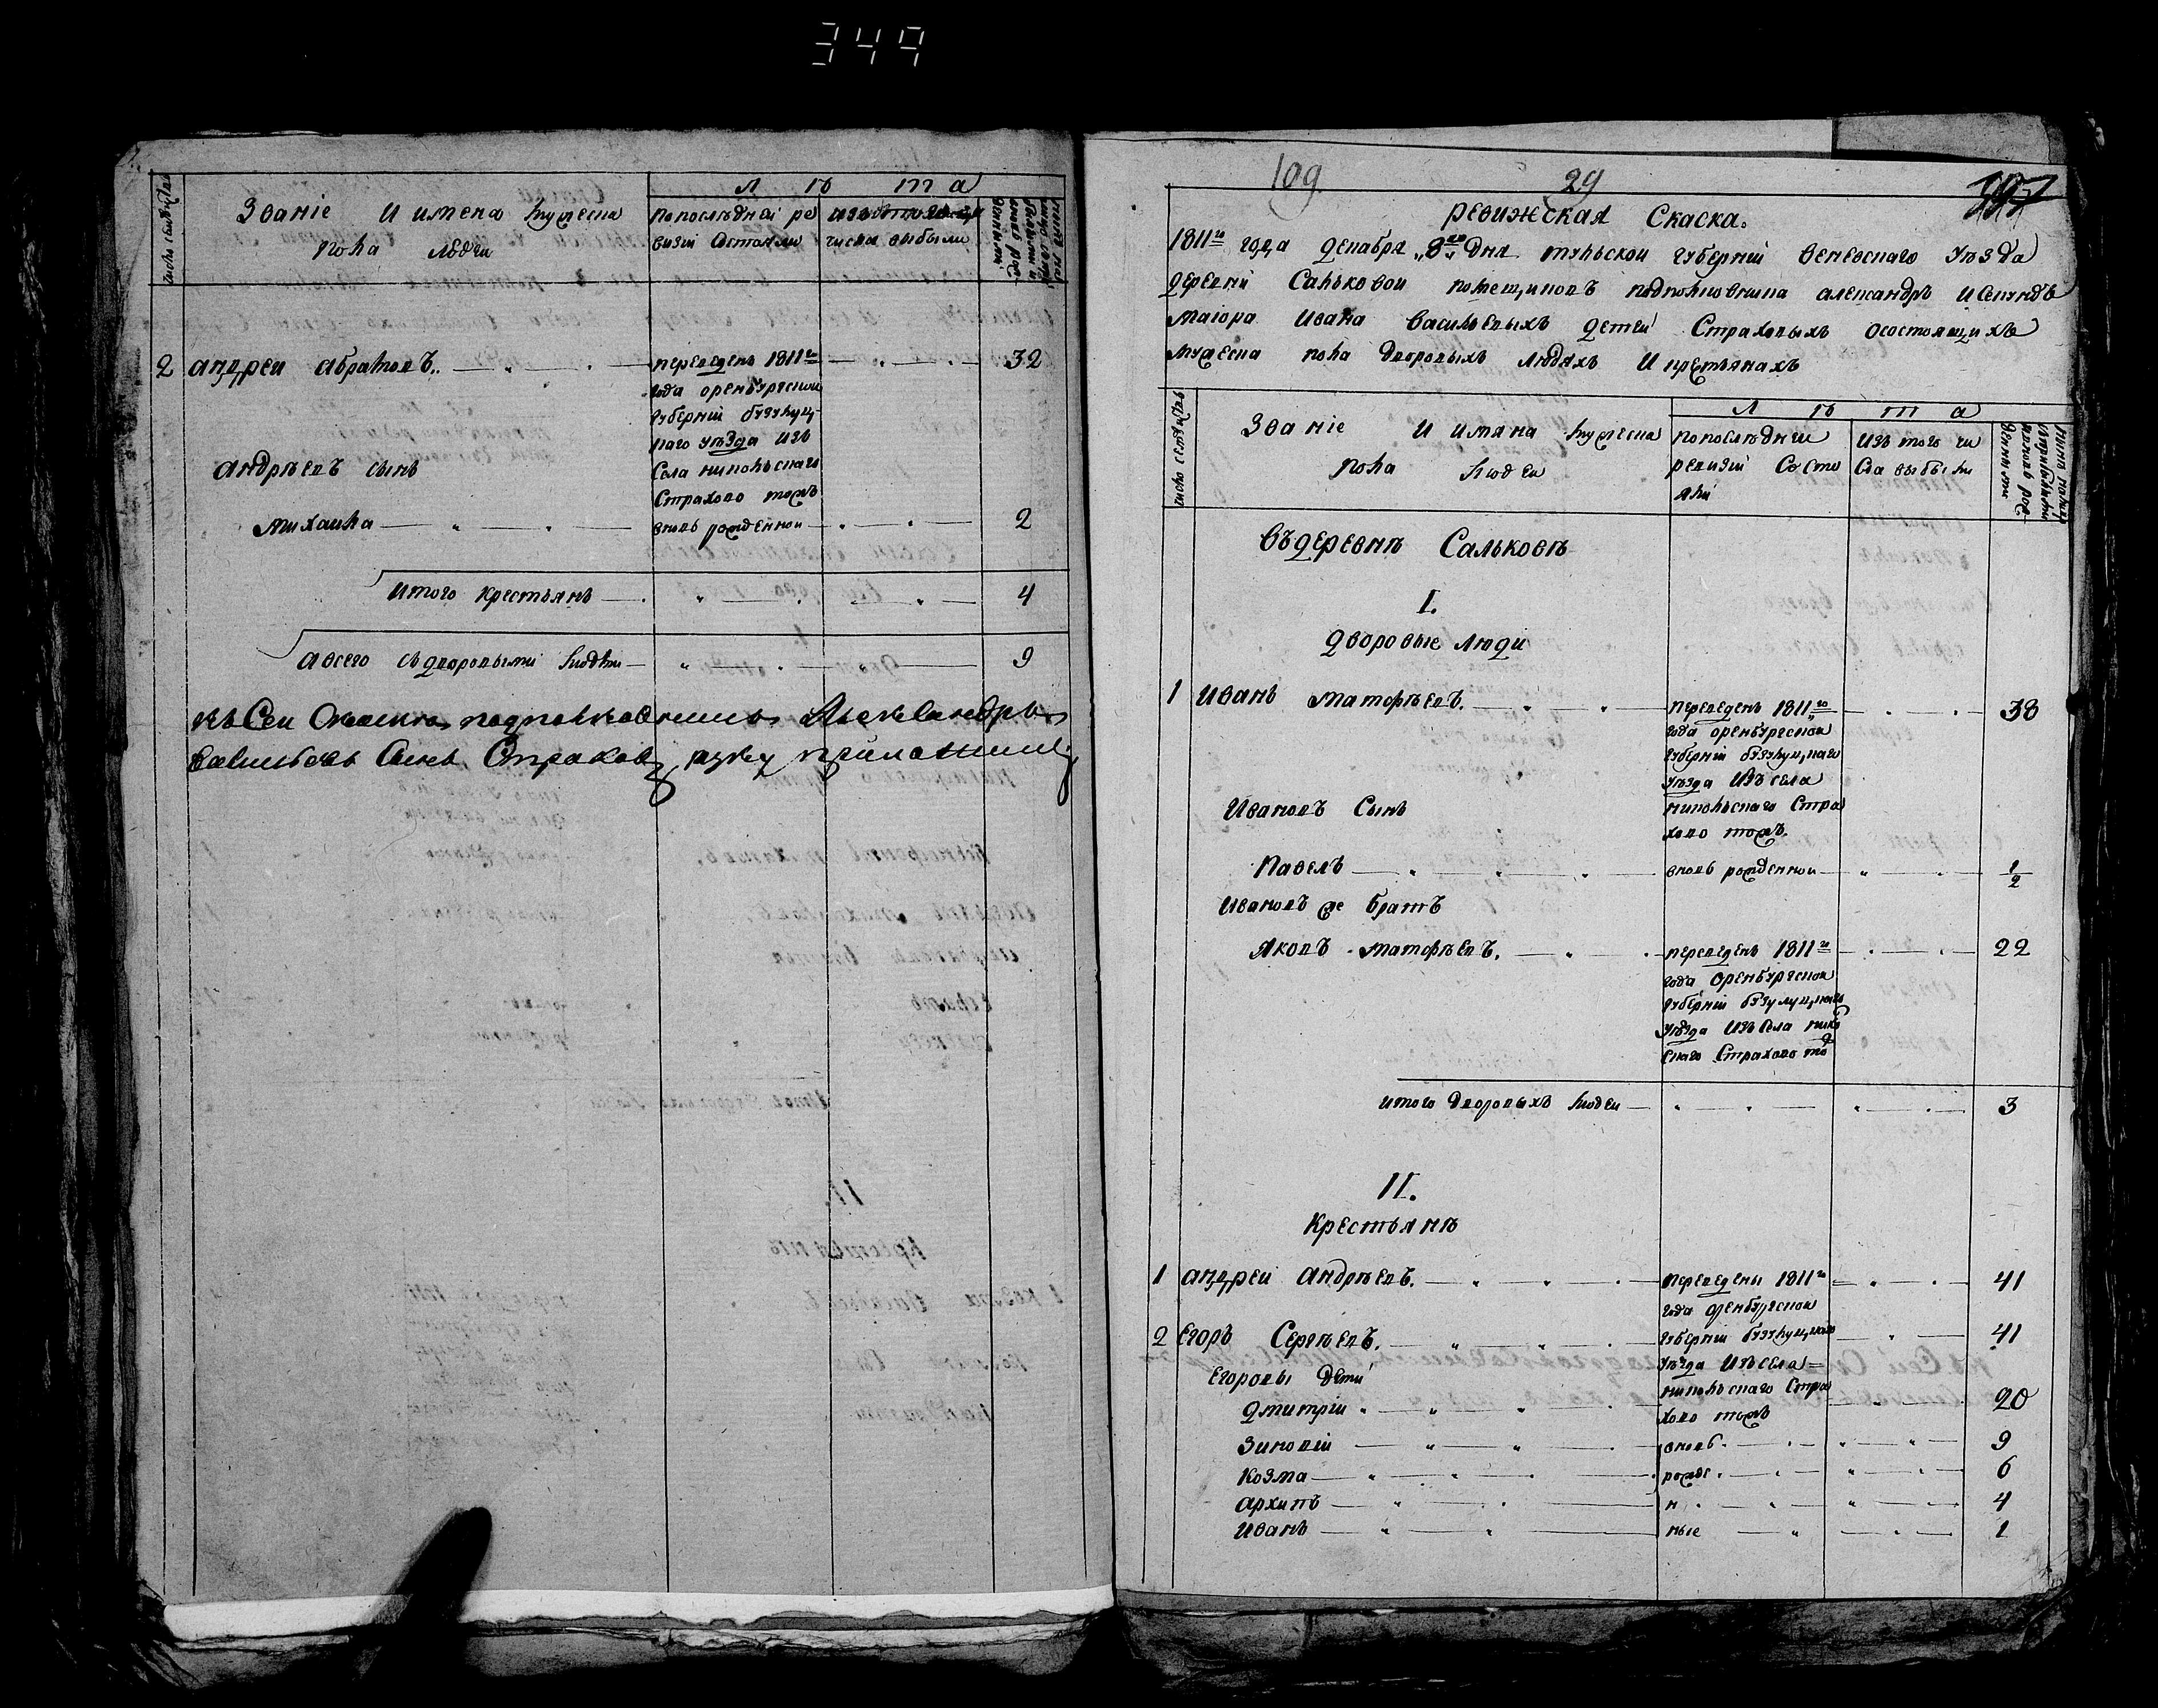 349
число семей
Званіе И имена мужеска
пола людей
Л ѣ т а
попослѣдней ре
визіи Состояли
числа выбыли
2 андреи абрамовъ. 32
переведенъ 1811го
года оренбургскои
губерніи бузулуц
каго уѣзда изъ
Села никольскаго
Страхово тожъ
андрѣевъ сынъ
михаила вновь рожденнои 2
итого крестьянъ 4
авсего съдворовыми людьми 9
къ Сеи Скаскѣ подполковникъ Александръ
васильевъ Сынъ Страховъ руку приложилъ
109 29
ревижская Скаска.
1811го года декабря „8го„ дня тульскои губерніи веневскаго уѣзда
деревни Сальковои помещиковъ подполковника александръ и Секундъ
маіора ивана васильевыхъ детеи Страховыхъ осостоящихъ
мужеска пола дворовыхъ людяхъ И крестьянахъ
число семей
Званіе И имяна мужеска
пола людеи
Л ѣ т а
попослѣднеи
ревизіи Состо
яли
Изъ того чи
Сла выбыли
въдеревнѣ Сальковѣ
I.
дворовые люди
1 иванъ матофѣевъ. 38
переведенъ 1811го
года оренбургскои
губерніи бузулуцкаго
уѣзда Изъ села
никольскаго Стра
хово тожъ.
Ивановъ Сынъ
Павелъ вновь рожденнои 1/2
Ивановъ же братъ
Яковъ матофѣевъ. 22
переведенъ 1811го
года оренбургскои
губерніи бузулуцкаго
уѣзда Изъ Села нико
скаго Страхово тож
итого дворовыхъ людеи 3
II.
крестьянѣ
1 андреи андрѣевъ. 41
переведены 1811го
года оренбургскои
2 егоръ Сергѣевъ. губерніи бузулуцкаго 41
уѣзда Изъ села
Егоровы дѣти
никольскаго Стра
дмитріи 20
хово тожъ
Зиновіи вновь 9
козма рожде 6
архипъ н 4
иванъ ные 1